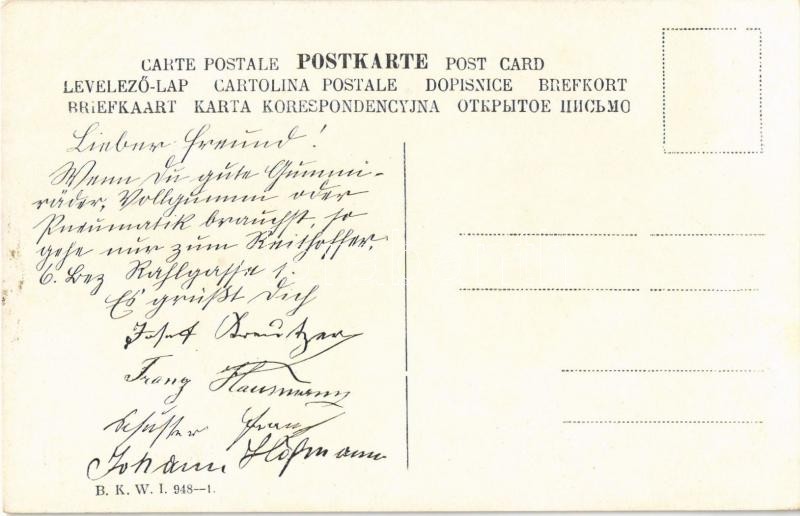 CARTE POSTALE POSTKARTE POST CARD
LEVELEZŐ-LAP CARTOLINA POSTALE DOPISNICE BREFKORT
BRIEFKAART KARTA KORESPONDENCYJNA ОТКРЫТОЕ ПИСЬМО
Lieber Freund!
Wenn Du gute Gummi-
räder, Vollgummi oder
Pneumatik brauchst, so
gehe nur zum Reithoffer,
6. Bez Rahlgasse 1.
Es grüßt Dich
Josef Kreutzer
Franz Hausmann
Schuster Franz
Johann Hofmann
B. K. W. I. 948—1.